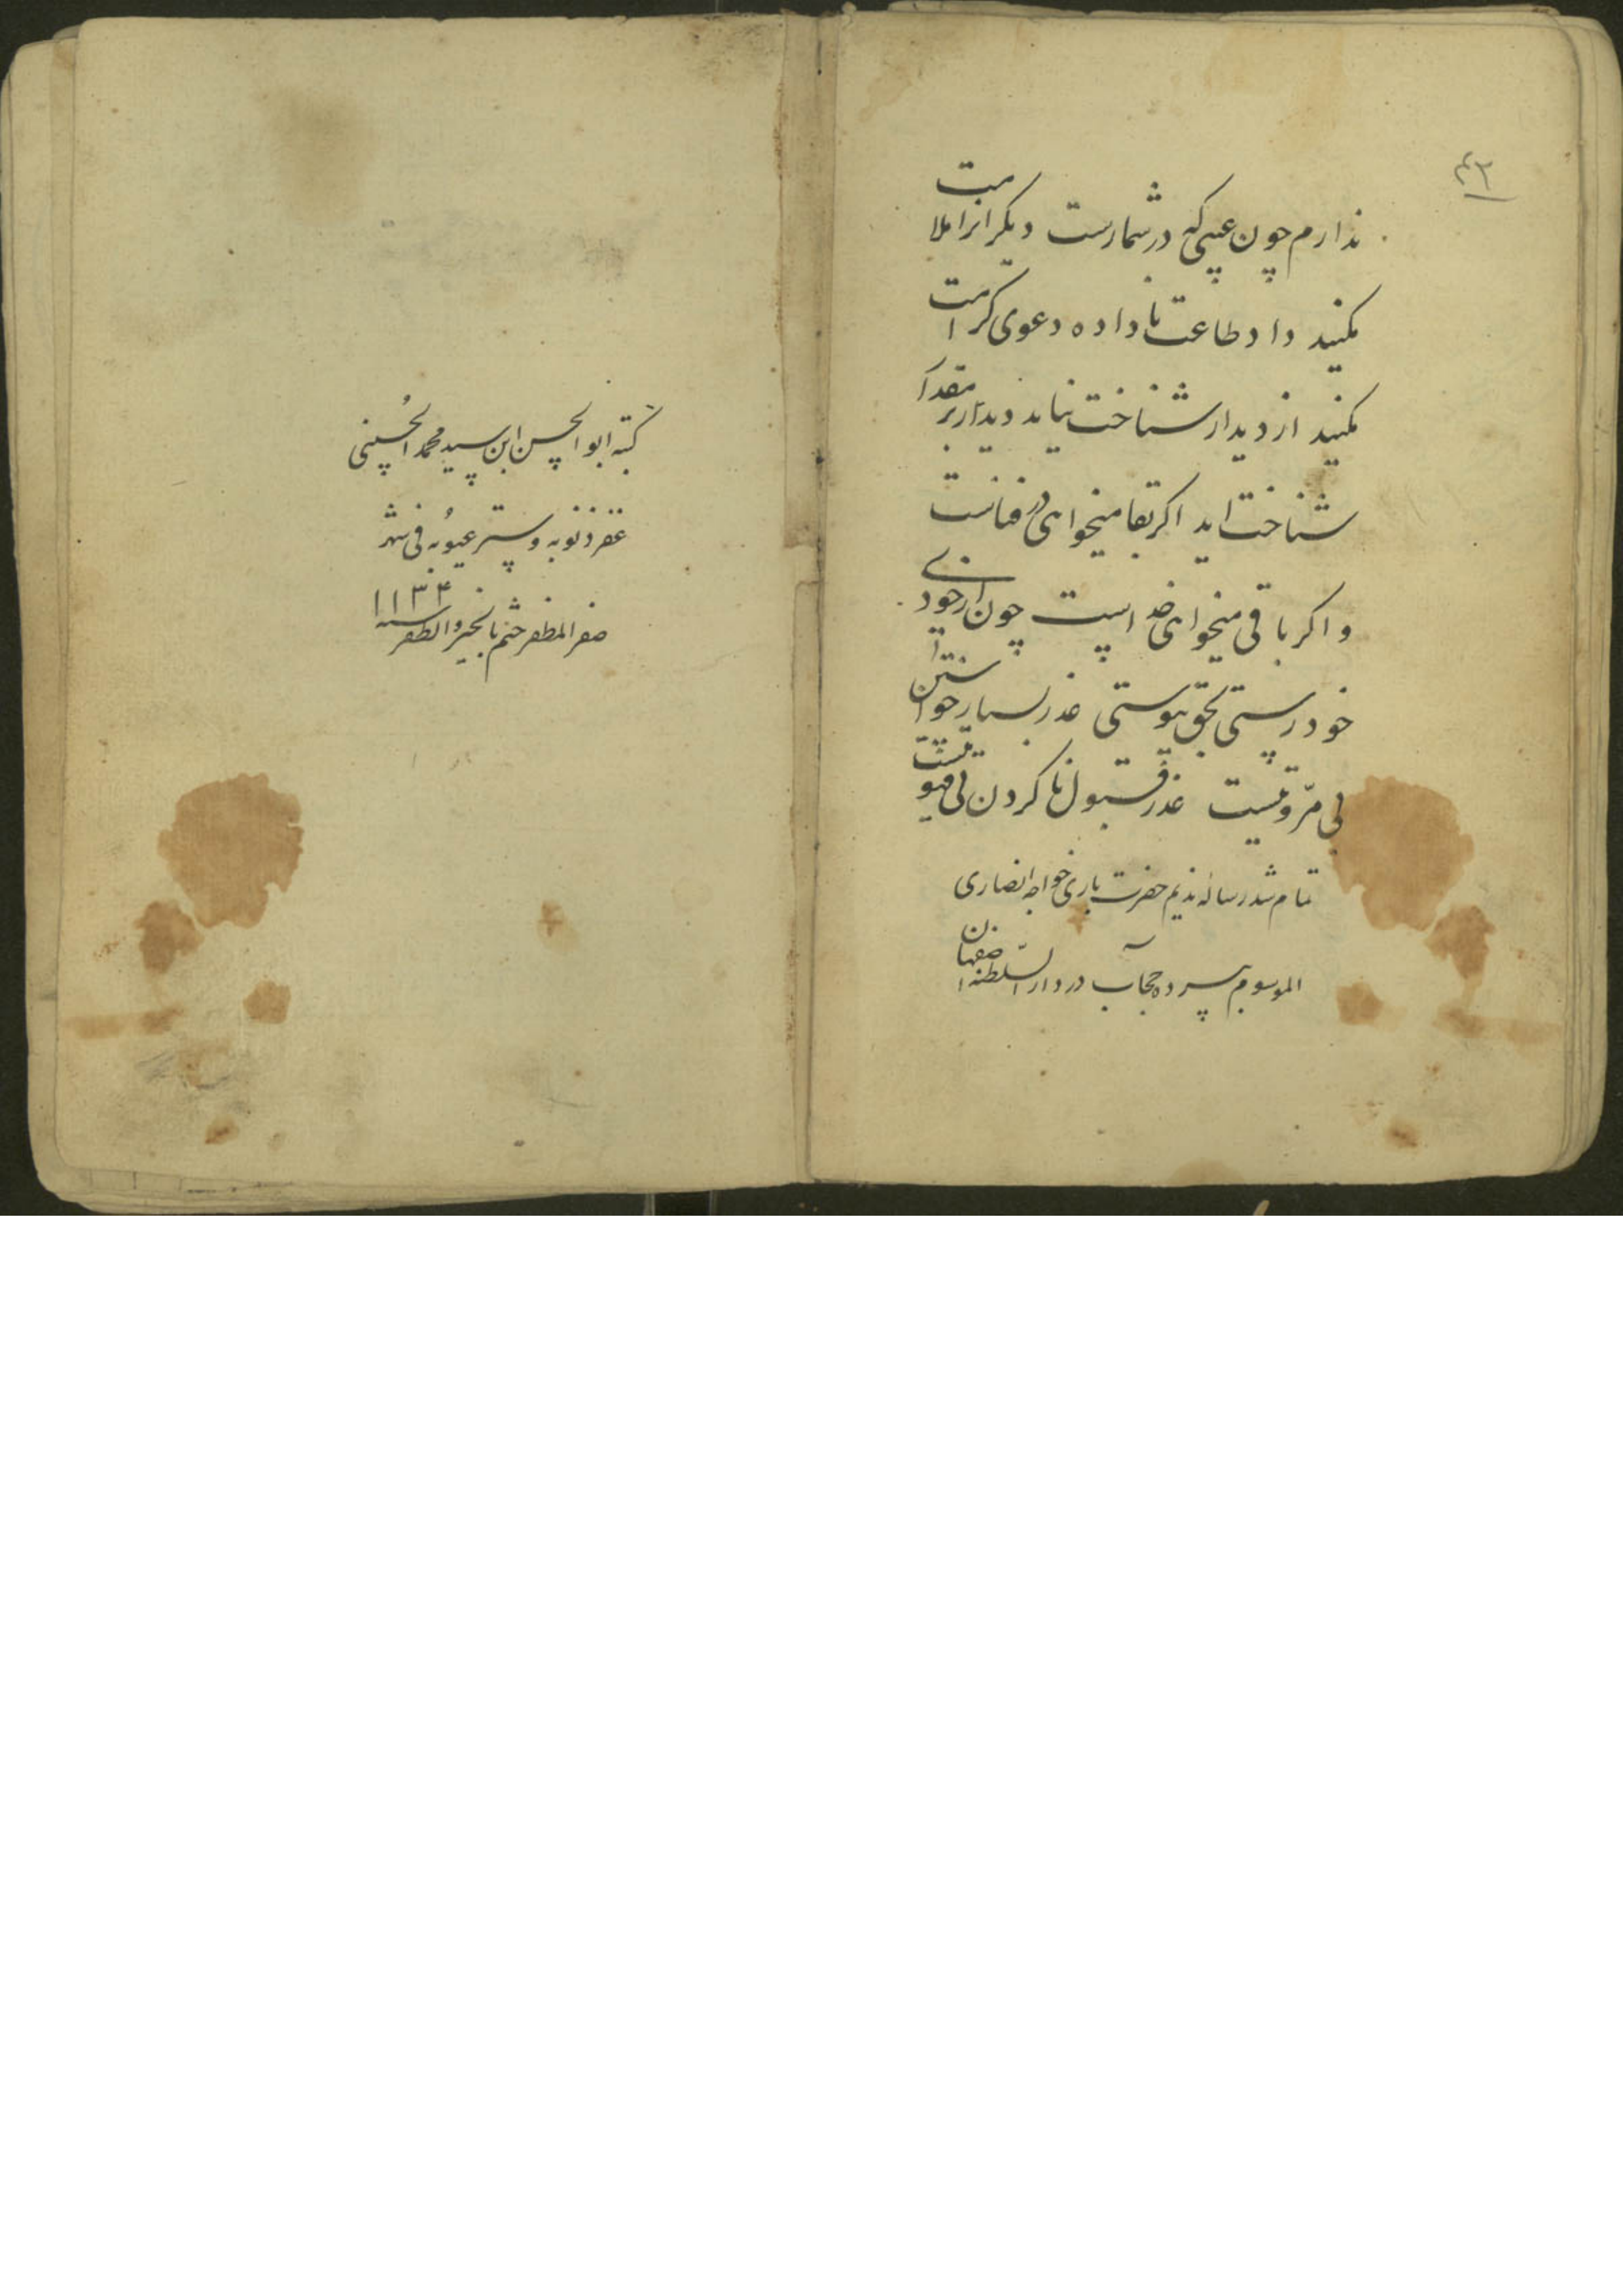 ۴۲
ندارم چون عیبی که در شمارست دیگرانرا ملامت
مکنید داد طاعت نا داده دعوی کرامت
مکنید از دیدار شناخت نیاید دیدار بر مقدار
شناخت اید اگر بقا میخواهی در فناست
و اگر باقی میخواهی خداست چون از خودی
خود رستی بحق پیوستی عذر بسیار خواستن
بی مروتیست عذر قبول نا کردن بی فتوتیست
تمام شد رساله ندیم حضرت باری خواجه انصاری
الموسوم بپرده حجاب در دار السلطنه اصفهان
کتبه ابو الحسن ابن سید محمد الحسینی
غفر ذنوبه و ستر عیوبه فی شهر
صفر المظفر ختم بالخیر و الظفر سنه ۱۱۳۴